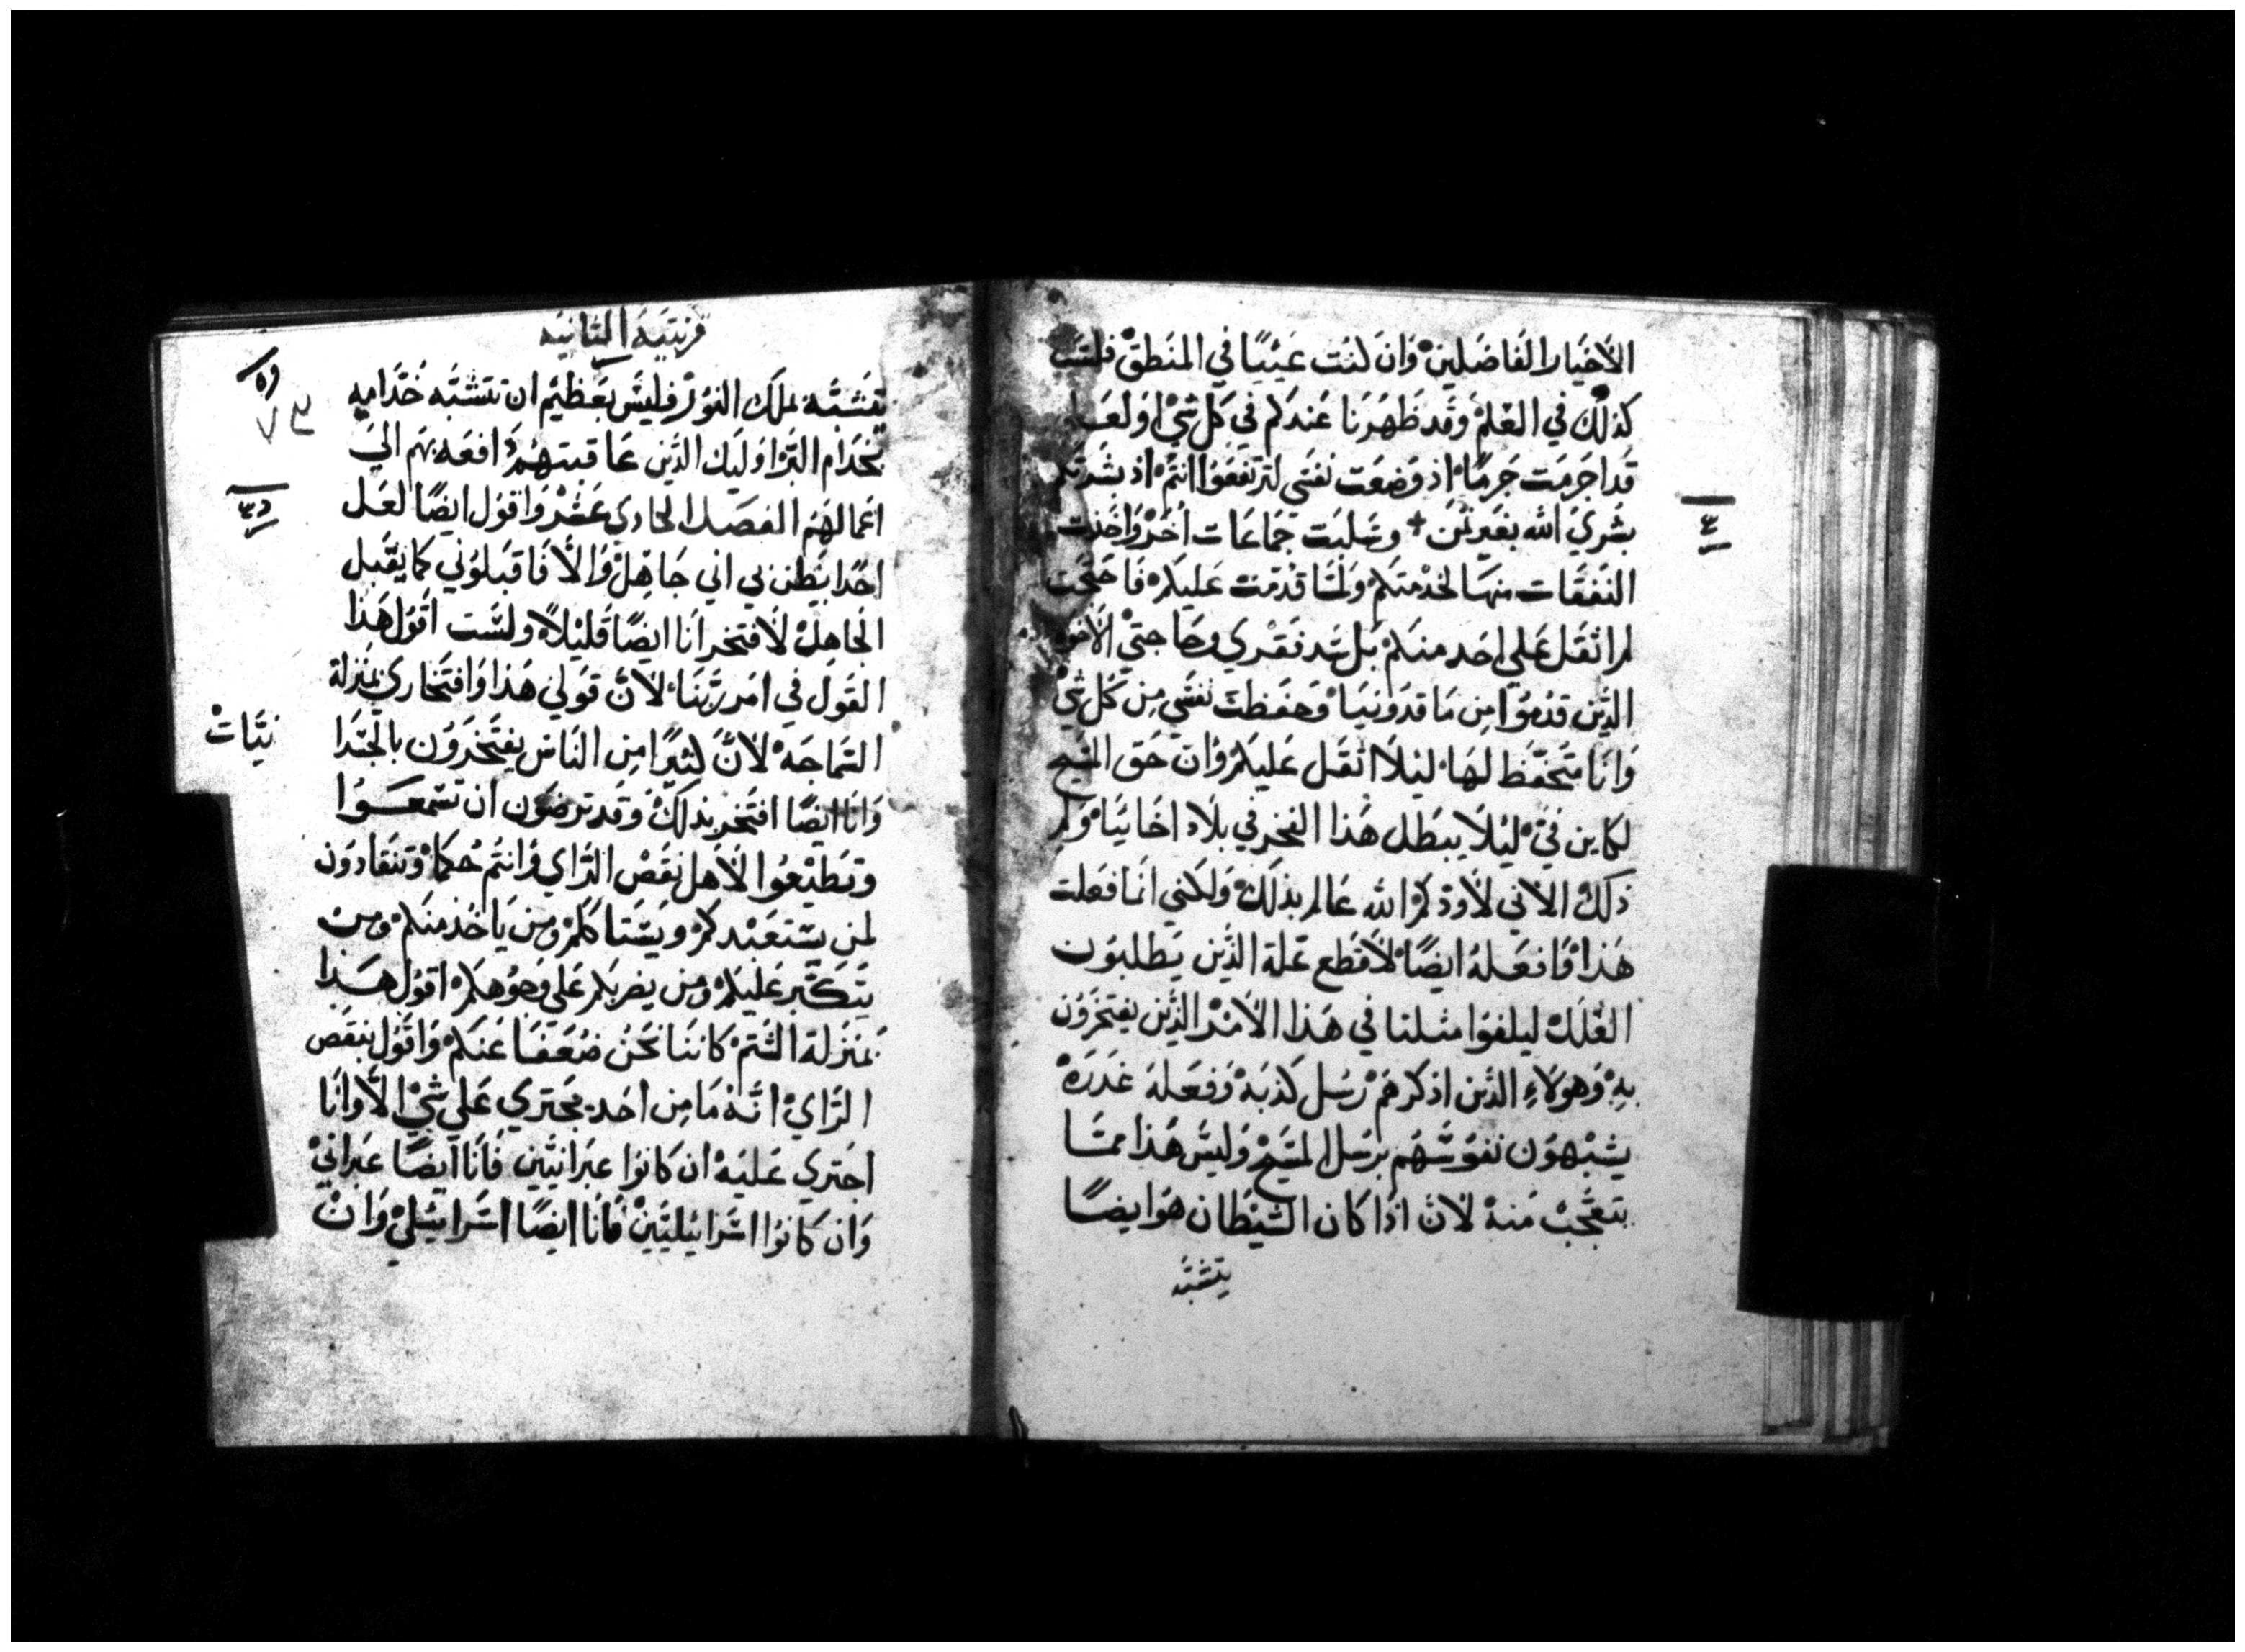 الأخيار الفاضلين وان كنت عييبًا في المنطق فلست
كذلك في العلم وقد ظهرنا عندكم في كل شي او لعلي
قد اجرمت جرمًا اذ وضعت نفسي لترتفعوا انتم اذ بشرتكم
بشري الله بغير ثمن + وسلبت جماعات اخر واخذت
النفقات منها لخدمتكم ولما قدمت عليكم فاحتجت
لم اثقل علي احد منكم بل سد فقري وحاجتي الاخوة
الذين قدموا من ماقدونيا وحفظت نفسي من كل شي
وانا متحفظ لها ليلا اثقل عليكم وان حق المسيح
لكاين في ليلا يبطل هذا الفخر في بلاد اخاييا ولم
ذلك الاني لا اودكم الله عالم بذلك ولكني انما فعلت
هذا وافعله ايضًا لاقطع علة الذين يطلبون
العلل ليلفوا مثلنا في هذا الامر الذين يفتخرون
به وهولاء الذين اذكرهم رسل كذبة وفعلة غدرة
يشبهون نفوسهم برسل المسيح وليس هذا مما
يتعجب منه لان اذا كان الشيطان هو ايضًا
يتشبه
٤
قرنتيه الثانيه
يتشبه بملك النور فليس بعظيم ان تتشبه خدامه
بخدام البر اوليك الذين عاقبتهم دافعه بهم الي
اعمالهم الفصل الحادي عشر واقول ايضًا لعل
احدًا يظن بي اني جاهل والا فاقبلوني كما يقبل
الجاهل لافتخر انا ايضًا قليلاً ولست اقول هذا
القول في امر ربنا لان قولي هذا وافتخاري بمنزلة
السماجه لان كثيرًا من الناس يفتخرون بالجسدا
نيات
وانا ايضًا افتخر بذلك وقد ترضون ان تسمعوا
وتطيعوا لاهل نقص الراي وانتم حكما وتنقادون
لمن يستعبدكم ويستاكلكم ومن ياخذ منكم ومن
يتكبر عليكم ومن يضربكم على وجوهكم اقول هذا
بمنزلة الشتم كاننا نحن ضعفا عنكم واقول بنقص
الراي انه ما من احد يجتري علي شي الا وانا
اجتري عليه ان كانوا عبرانيين فانا ايضًا عبراني
وان كانوا اسراييليين فانا ايضًا اسراييلي وان
٧٣